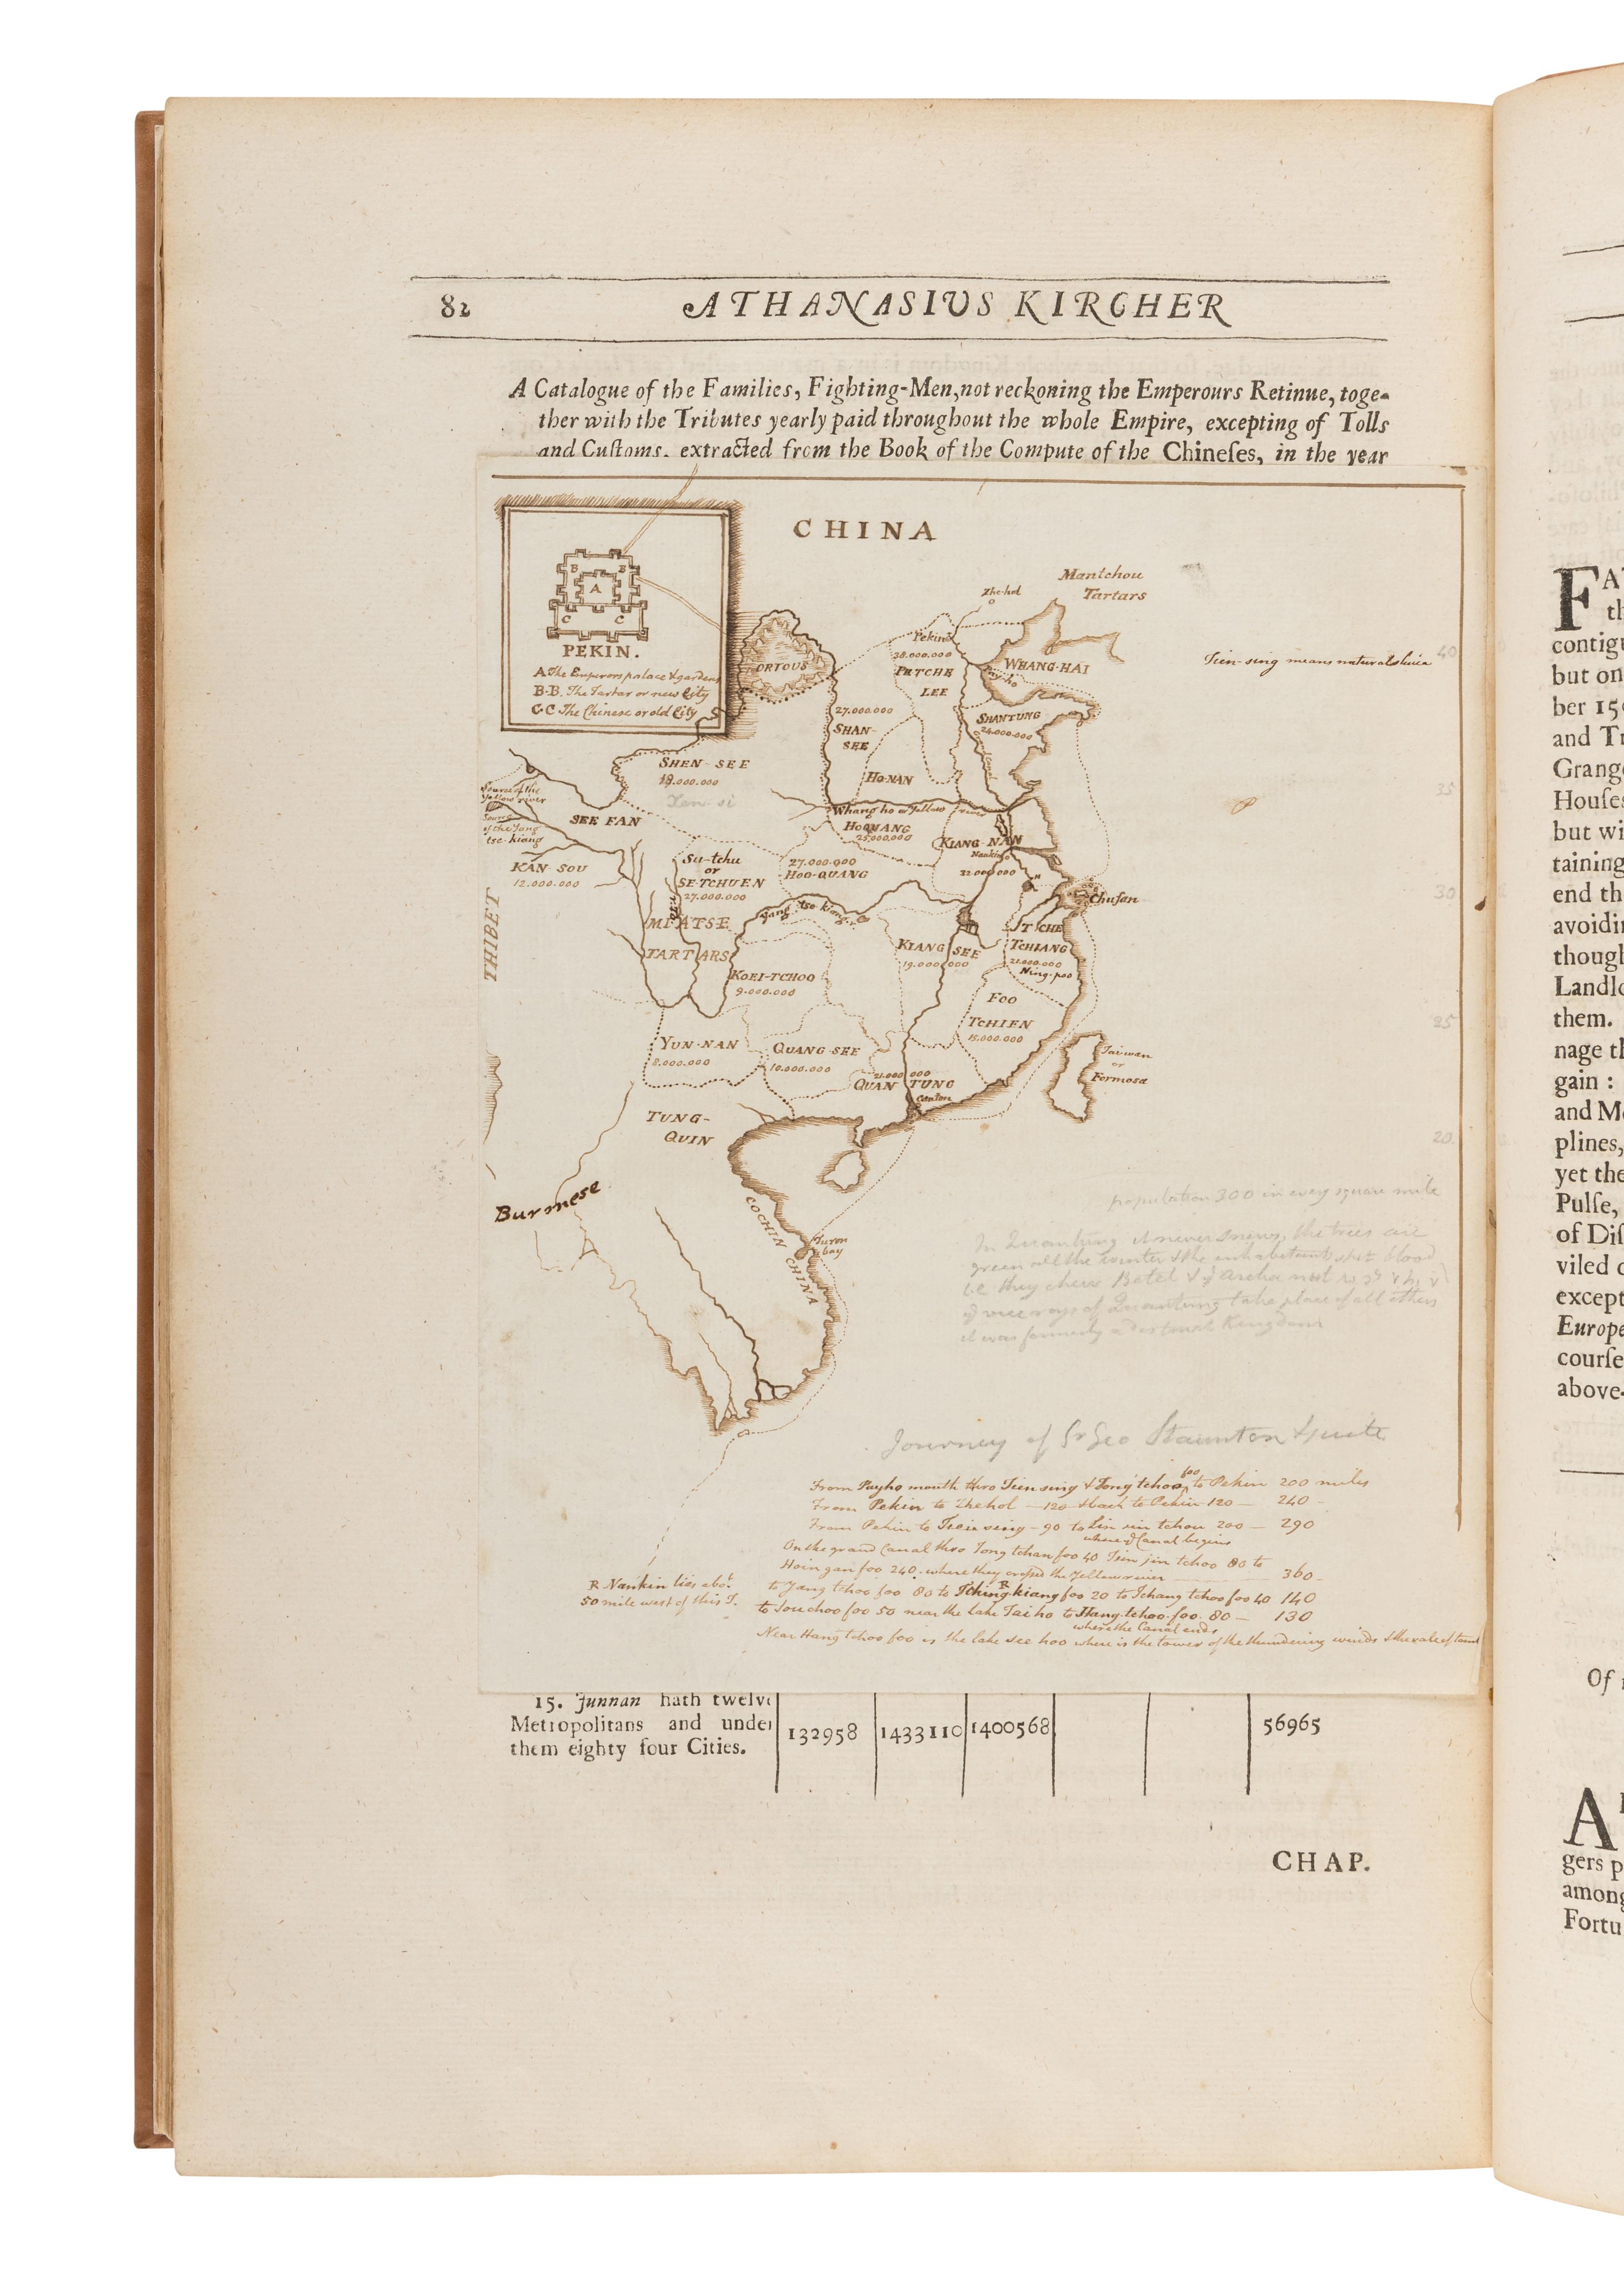 82 ATHANASIVS KIRCHER
A Catalogue of the Families, Fighting-Men, not reckoning the Emperours Retinue, toge-
ther with the Tributes yearly paid throughout the whole Empire, excepting of Tolls
and Cuſtoms, extracted from the Book of the Compute of the Chineſes, in the year
CHINA
B B
A
C C
PEKIN.
A The Emperors palace & gardens
B·B. The Tartar or new City
C·C The Chinese or old City
Zhe-hol
Mantchou
Tartars
Pekin
38.000.000
PETCHE
LEE
Pay-ho
WHANG-HAI
Tien-sing means
40
ORTOUS
27.000.000
SHAN-
SEE
SHANTUNG
24.000.000
SHEN-SEE
18.000.000
Xan-si
HO-NAN
canal
35
Source of the
Yellow river
Source
of the Yang
tse-kiang
SEE FAN
Whang ho or Yellow river
HOQUANG
25.000.000
KIANG-NAN
Nankin
32.000.000
KAN-SOU
12.000.000
Su-tchu
or
SE-TCHUEN
27.000.000
27.000.000
HOO-QUANG
30
Chusan
THIBET
MEATSE
TARTARS
Yang-tse-kiang
KIANG SEE
19.000.000
TCHE
TCHIANG
21.000.000
Ning-poo
KOEI-TCHOO
9.000.000
FOO
TCHIEN
15.000.000
25
YUN-NAN
8.000.000
QUANG-SEE
10.000.000
21.000.000
QUAN TUNG
Canton
Tai-wan
or
Formosa
TUNG-
QUIN
20
Burmese
COCHIN CHINA
Turon
bay
population 300 in every square mile
In Quantung it never snows, the trees are
green all the winter & the inhabitants spit blood
i.e they chew Betel &
vice roys of Quantung take place of all others
it was formerly a Kingdom
Journey of Sr Geo Staunton & suite
From Payho mouth thro Tiensing & Tong tchoo foo to Pekin 200 miles
From Pekin to Zhehol — 120 & back to Pekin 120 — 240
From Pekin to Tsien sing — 90 to Lin sin tchou 200 — 290
where ye Canal begins
On the grand Canal thro Tong tchan foo 40 Tsin jin tchoo 80 to
Hoin gan foo 240. where they crossed the Yellow river — 360
to Yang tchoo foo 80 to Tching kiang foo 20 to Tchang tchoo foo 40 140
to Sou choo foo 50 near the lake Tai ho to Hang. tchoo. foo. 80 — 130
where the Canal ends
Near Hang tchoo foo is the lake See hoo where is the tower of the thundering winds & the vale of
R Nankin lies abot
50 mile west of this T.
15. Junnan hath twelve
Metropolitans and under
them eighty four Cities.
132958 1433110 1400568 56965
CHAP.
FA
th
contig
but on
ber 15
and T
Grang
Houſes
but wi
taining
end th
avoidi
though
Landlo
them.
nage th
gain :
and M
plines,
yet the
Pulſe,
of Diſ
viled
except
Europe
courſe
above-
Of
A
gers p
among
Fortu